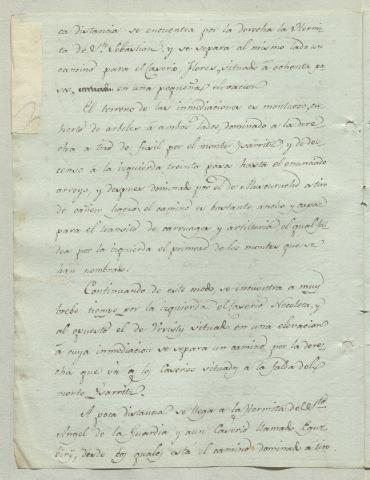 ca distancia se encuentra por la derecha la Hermi
ta de Sn. Sebastian, y se separa al mismo lado un
camino para el Caserio Flores, situado á ochenta pa
sos en una pequeña elevacion
El terreno de las inmediaciones es montuoso, cu
bierto de arboles á ambos lados, dominado á la dere
cha á tiro de fusil por el monte y de des
censo á la izquierda treinta pasos hasta el enunciado
arroyo, y despues dominado por el de á tiro
de cañon: luego el camino es bastante ancho y capaz
para el transito de carruages y artilleria el qual
por la izquierda el primero de los montes que se
han nombrado.
Continuando de este modo se encuentra a muy
trebe tiempo por la izquierda el Caserio Recoleta, y
al opuesto el de situado en una elevacion
á cuya inmediacion se separa un camino por la dere
cha que vá á los Caserios situados á la falda del
monte
A poca distancia se llega á la Hermita del Sto.
Angel de la Guardia, y á un Caserio llamado
desde los quales está el camino dominado á tiro